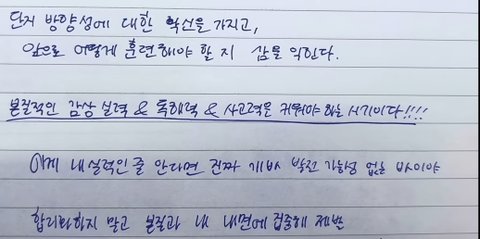 단지 방향성에 대한 확신을 가지고,
앞으로 어떻게 훈련해야 할 지 감을 익힌다.
본질적인 감상 실력 & 독해력 & 사고력을 키워야 하는 시기이다!!!!
이게 내 실력인 줄 안다면 진짜 개바 발전 가능성 없는 바이야
합리화하지 말고 본질과 내 내면에 집중해 제발